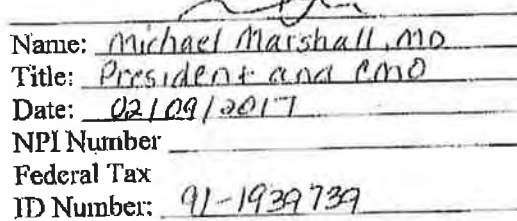 Name: Michael Marshall, MD
Title: President and CMO
Date: 02/09/2017
NPI Number
Federal Tax
ID Number: 91-1939739